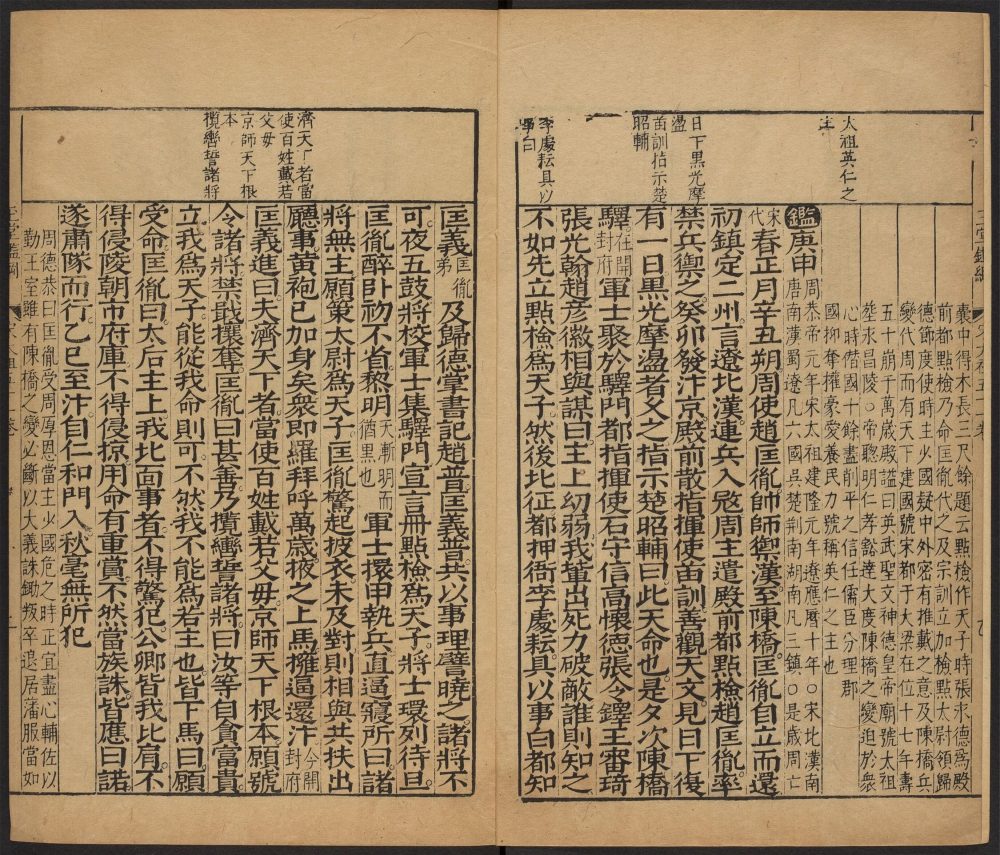 太祖英仁之
主
日下黑光摩
盪
苗訓指示楚
昭輔
李處耘具以
事白
囊中得木長三尺餘題云點檢作天子時張永德爲殿
前都點檢乃命匡胤代之及宗訓立加檢點太尉領歸
德節度使時主少國疑中外密有推戴之意及陳橋兵
變代周而有天下建國號宋都于大梁在位十七年壽
五十崩于萬歲殿謚曰英武聖文神德皇帝廟號太祖
葬永昌陵○帝聰明仁孝豁達大度陳橋之變迫於衆
心時僭國十餘盡削平之信任儒臣分理郡
國抑奪權豪愛養民力號稱英仁之主也
鑑庚申周恭帝元年宋太祖建隆元年遼應曆十年○宋北漢南
唐南漢蜀遼凡六國吳楚荆南湖南凡三鎮○是歲周亡
宋代春正月辛丑朔周使趙匡胤帥師禦漢至陳橋匡胤自立而還
初鎮定二州言遼北漢連兵入寇周主遣殿前都點檢趙匡胤率
禁兵禦之癸卯發汴京殿前散指揮使苗訓善觀天文見日下復
有一日黑光摩盪者久之指示楚昭輔曰此天命也是夕次陳橋
驛在開封府軍士聚於驛門都指揮使石守信高懷德張令鐸王審琦
張光翰趙彥徽相與謀曰主上幼弱我輩出死力破敵誰則知之
不如先立點檢爲天子然後北征都押衙李處耘具以事白都知
濟天下者當
使百姓戴若
父母
京師天下根
本
攬轡誓諸將
匡義匡胤弟及歸德掌書記趙普匡義普共以事理譬曉之諸將不
可夜五鼓將校軍士集驛門宣言冊點檢爲天子將士環列待旦
匡胤醉卧初不省黎明天漸明而猶黑也軍士擐甲執兵直逼寢所曰諸
將無主願策太尉爲天子匡胤驚起披衣未及對則相與共扶出
廳事黃袍已加身矣衆卽羅拜呼萬歲掖之上馬擁逼還汴今開封府
匡義進曰夫濟天下者當使百姓戴若父母京師天下根本願號
令諸將禁戢攘奪匡胤曰甚善乃攬轡誓諸將曰汝等自貪富貴
立我爲天子能從我命則可不然我不能爲若主也皆下馬曰願
受命匡胤曰太后主上我北面事者不得驚犯公卿皆我比肩不
得侵陵朝市府庫不得侵掠用命有重賞不然當族誅皆應曰諾
遂肅隊而行乙巳至汴自仁和門入秋毫無所犯
周德恭曰匡胤受周厚恩當主少國危之時正宜盡心輔佐以
勤王室雖有陳橋之變必斷以大義誅鋤叛卒退居藩服當如